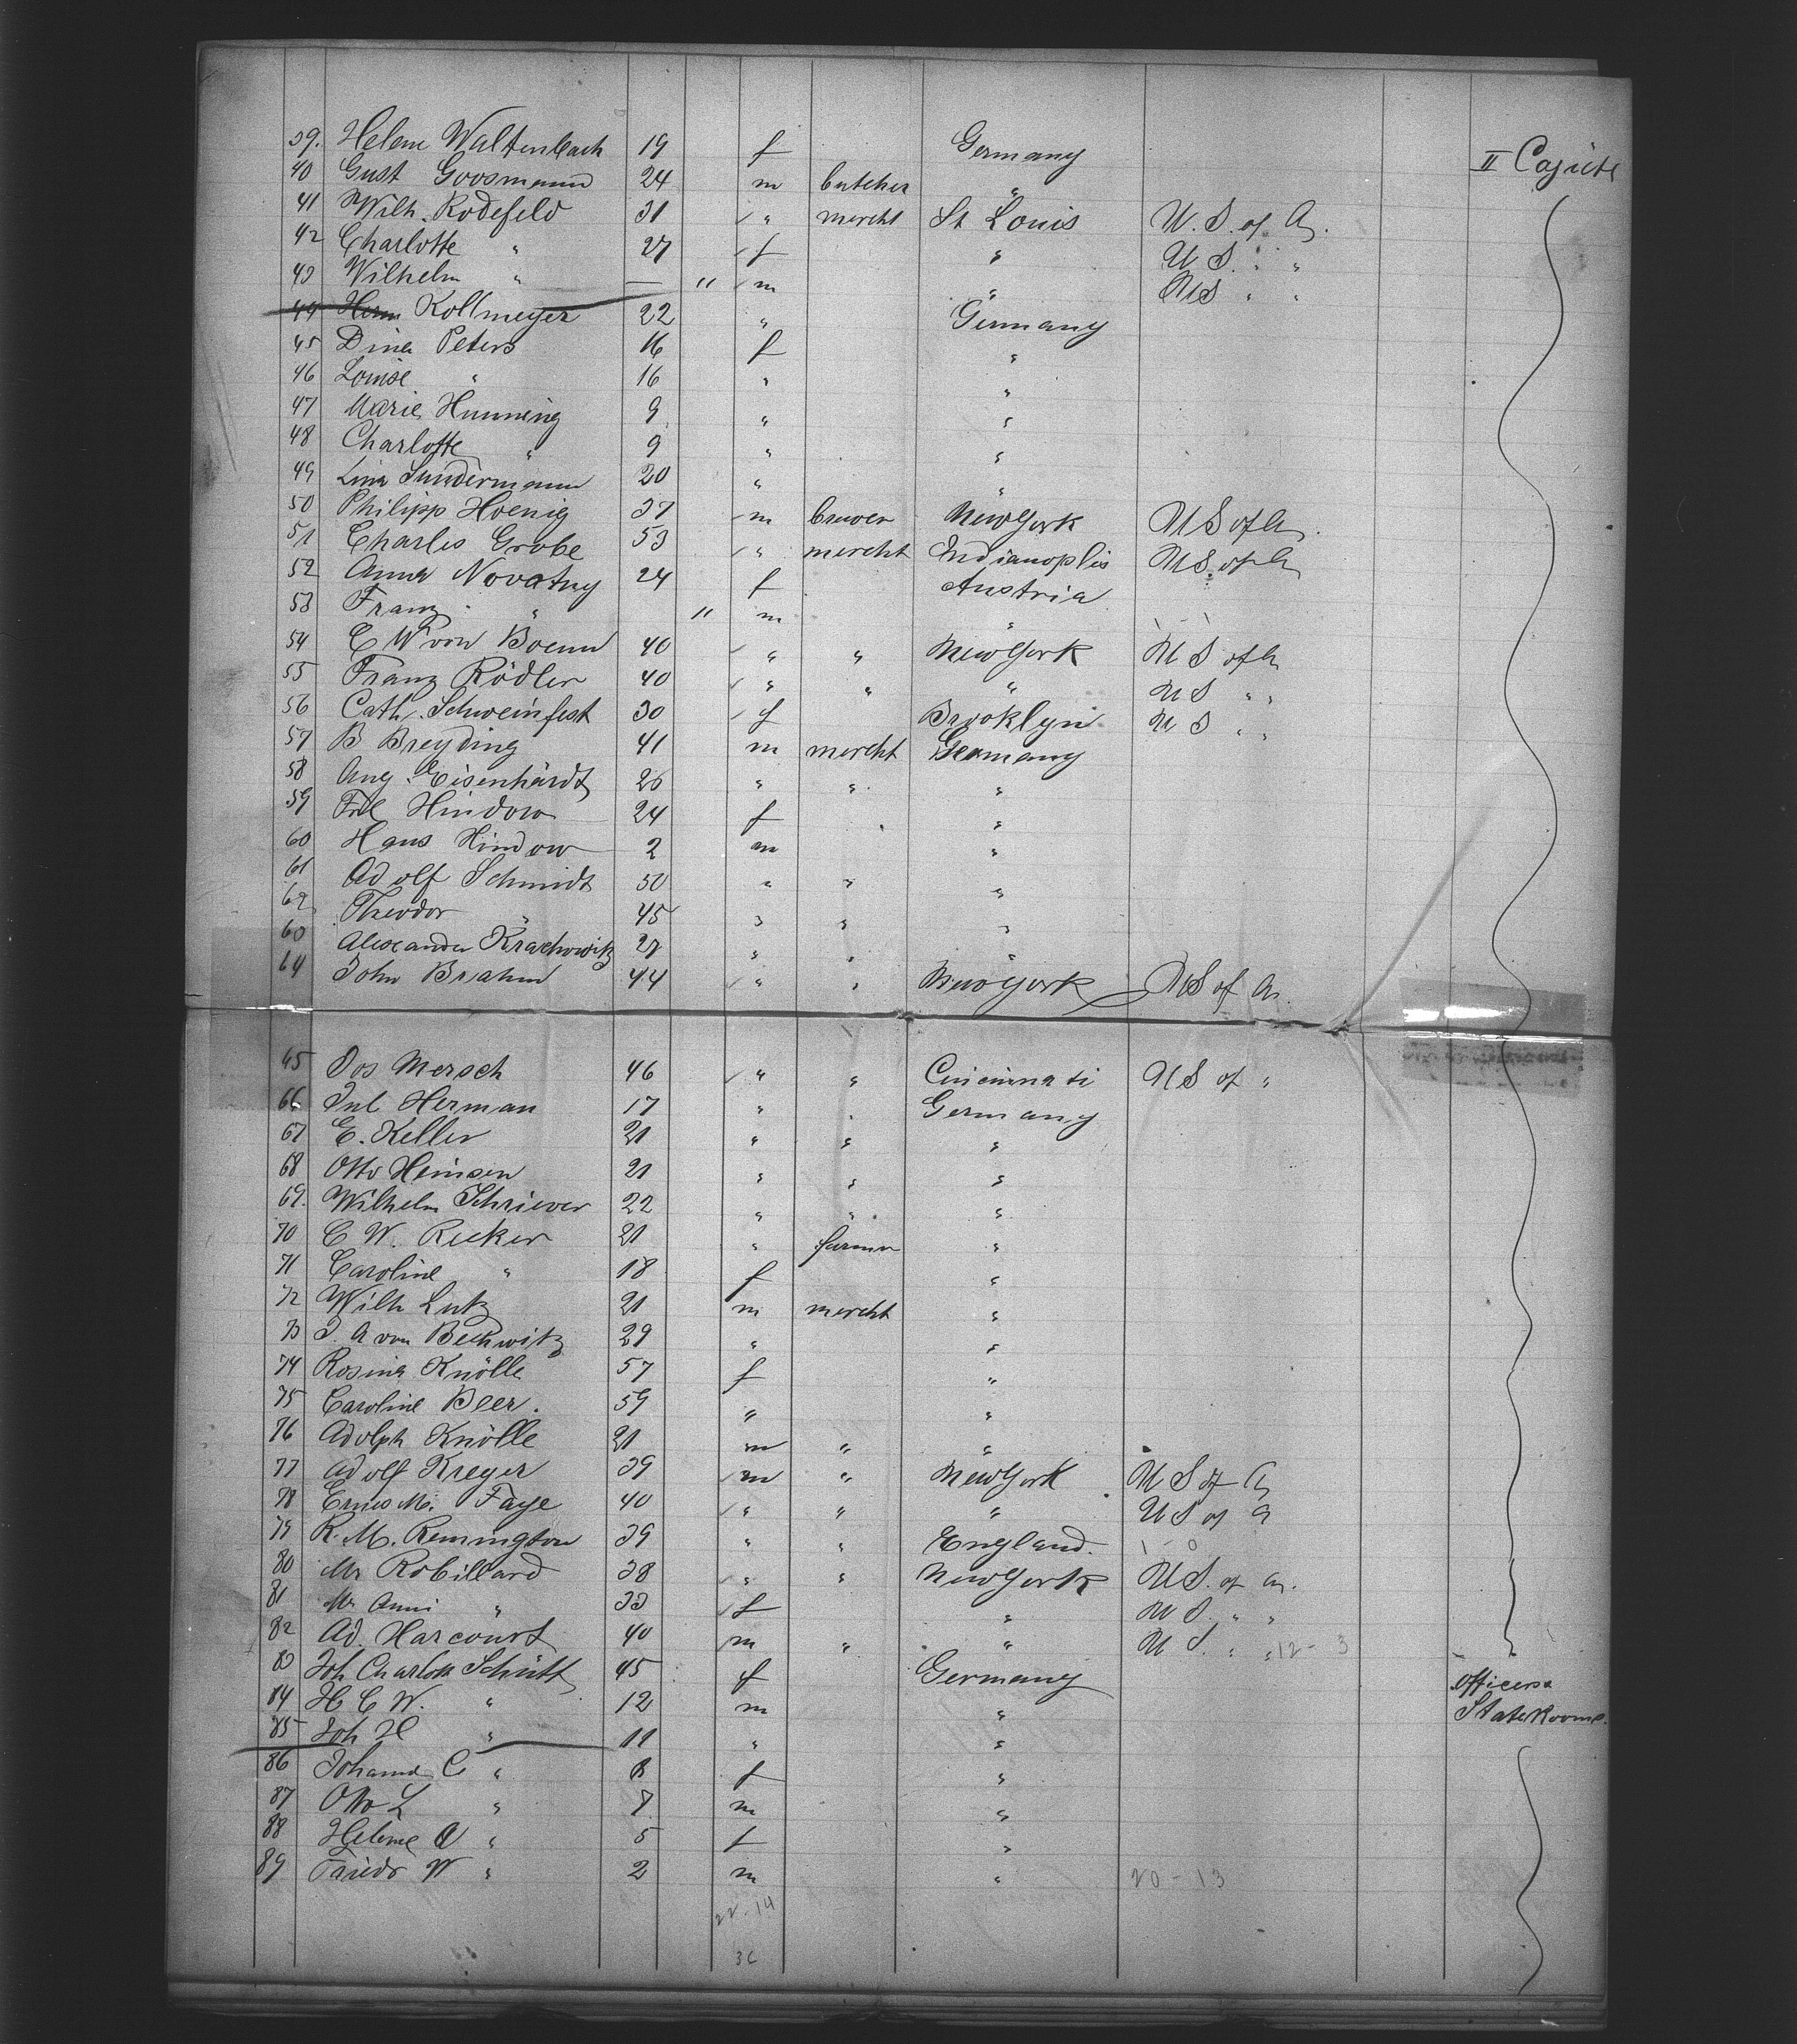 39. Helene Waltenbach 19 f Germany II Cajüte
40 Gust Goosmann 24 m butcher "
41 Wilh. Rodefeld 31 " mercht St Louis U. S. of A.
42 Charlotte " 27 f " U S. " "
43 Wilhelm " — " m " U S " "
44 Herm Kollmeyer 22 " Germany
45 Dina Peters 16 f "
46 Louise " 16 " "
47 Marie Hunning 9 " "
48 Charlotte " 9 " "
49 Lina Sundermann 20 " "
50 Philipp Hoenig 37 m brewer New York U S of A.
51 Charles Grobe 53 " mercht Indianoplis U S. of A
52 Anna Novatny 24 f Austria
53 Franz " " m "
54 C W von Boenn 40 " " New York U S of A
55 Franz Rödler 40 " " " U S " "
56 Cath. Schweinfest 30 f Brooklyn U S " "
57 B Breyding 41 m mercht Germany
58 Aug. Eisenhardt 26 " " "
59 Frl Hindow 24 f "
60 Hans Hindow 2 m "
61 Adolf Schmidt 50 " " "
62 Theodor " 45 " " "
63 Alexander 27 " " "
64 John Brahm 44 " " New York U S of A.
65 Jos Mersch 46 " " Cincinnati U S of "
66 Jul Herman 17 " " Germany
67 E. Keller 21 " " "
68 Otto Heinsen 21 " " "
69. Wilhelm Schriever 22 " " "
70 C W. Recker 21 " farmer "
71 Caroline " 18 f "
72 Wilh Lutz 21 m mercht "
73 J. A von 29 " "
74 Rosina Knölle 57 f "
75 Caroline Beer. 59 " "
76 Adolph Knölle 21 m " "
77 Adolf Kreyer 39 m " New York U S of A
78 M. Faye 40 " " " U S of A
79 R. M. Remington 39 " " England.
80 Mr Robillard 38 " " New York U S. of A.
81 Anni " 33 f " U S. " "
82 Ad. Harcourt 40 m " " U S. " " 12 - 3
83 Joh Charlott Schütt 45 f Germany Officers
84 H C W. " 12 m " State Rooms.
85 Joh H " 11 " "
86 Johanna C " 8 f "
87 Otto L " 7 m "
88 Helene " 5 f "
89 Friedr W " 2 m " 20 - 13
22 - 14